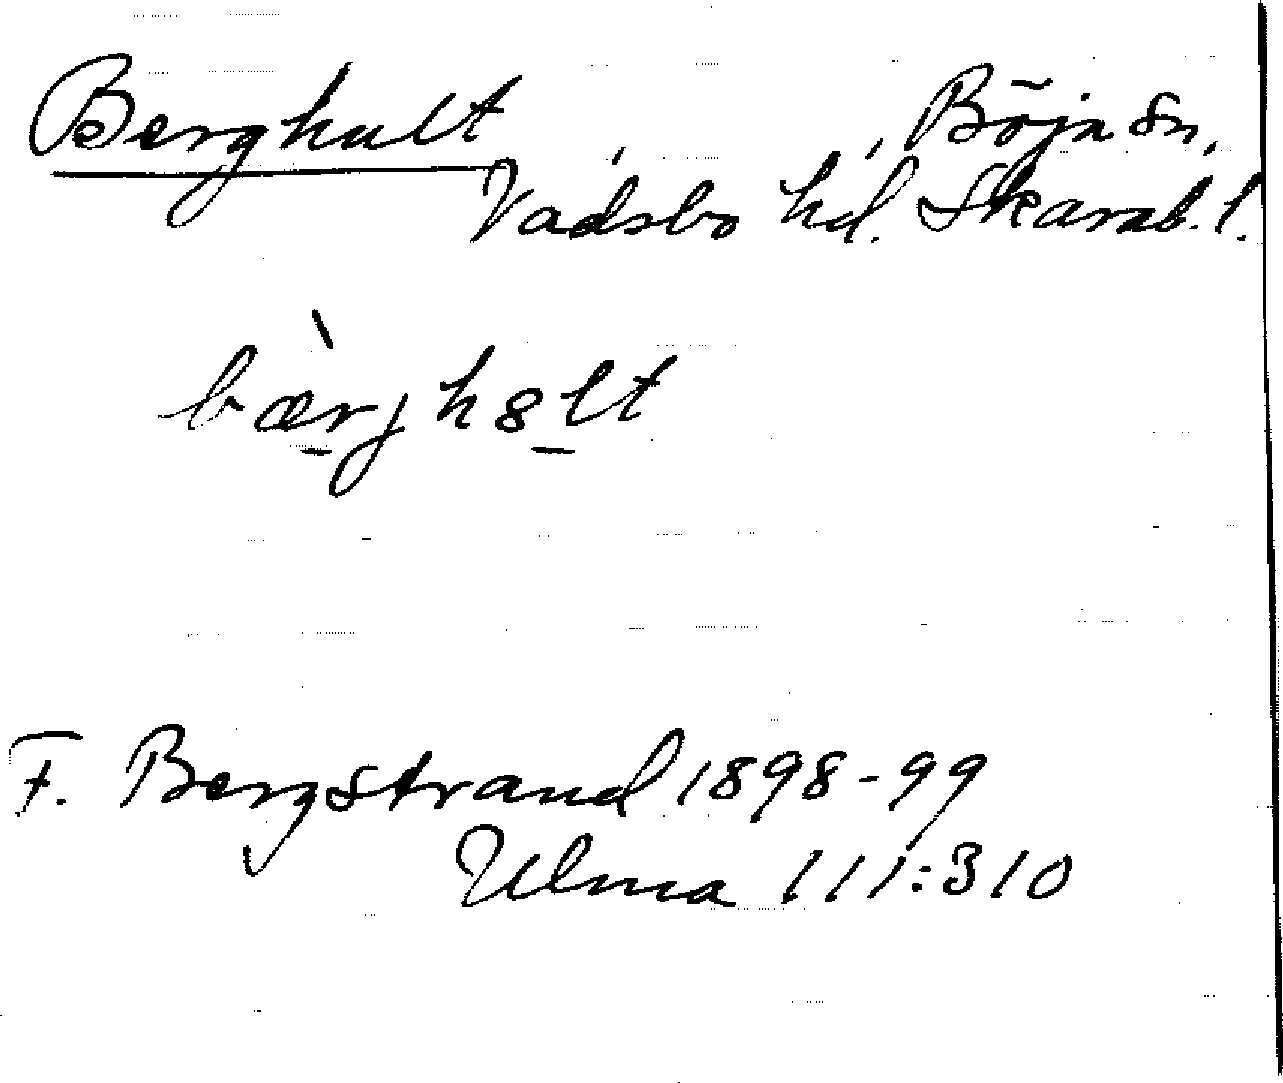 Berghult , , Böja sn,
Vadsbo hd. Skarab. l.
bær̠jh8l̠t
F. Bergstrand 1898-99
Ulma 111:310